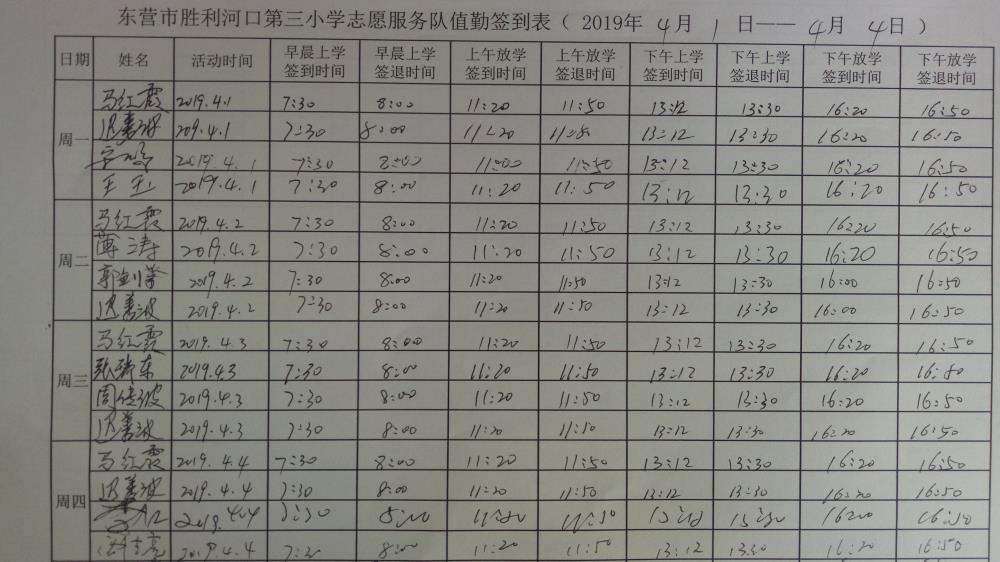 东营市胜利河口第三小学志愿服务队值勤签到表（2019年 4月 1 日——4月 4日）
日期 姓名 活动时间 早晨上学签到时间 早晨上学签退时间 上午放学签到时间 上午放学签退时间 下午上学签到时间 下午上学签退时间 下午放学签到时间 下午放学签退时间
周一 马红霞 2019.4.1 7:30 8:00 11:20 11:50 13:12 13:30 16:20 16:50
209.4.1 7:30 8:00 11:20 13:12 13:30 16:20 16:50
2019.4.1 7:30 8:00 11:00 11:50 13:12 13:30 16:20 16:50
王 2019.4.1 7:30 8:00 11:20 11:50 13:12 13:30 16:20 16:50
周二 马红霞 2019.4.2 7:30 8:00 11:20 11:50 13:12 13:30 16:20 16:50
薄涛 2019.4.2 7:30 8:00 11:20 11:50 13:12 13:30 16:20 16:50
郭 2019.4.2 7:30 8:00 11:20 11:50 13:12 13:30 16:00 16:50
2019.4.2 7:30 8:00 11:20 11:50 13:12 13:30 16:00 16:50
周三 马红霞 2019.4.3 7:30 8:00 11:20 11:50 13:12 13:30 16:20 16:50
张瑞东 2019.4.3 7:30 8:00 11:20 11:50 13:12 13:30 16:20 16:50
周 波 2019.4.3 7:30 8:00 11:20 11:50 13:12 13:30 16:20 16:50
2019.4.3 7:30 8:00 11:20 11:50 13:12 13:30 16:20 16:50
周四 马红霞 2019.4.4 7:30 8:00 11:20 11:50 13:12 13:30 16:20 16:50
2019.4.4 7:30 8:00 11:20 11:50 13:12 13:30 16:20 16:50
2019.4.4 1620 16:50
2019.4.4 8:00 11:20 11:50 13:12 1330 16:20 16:50